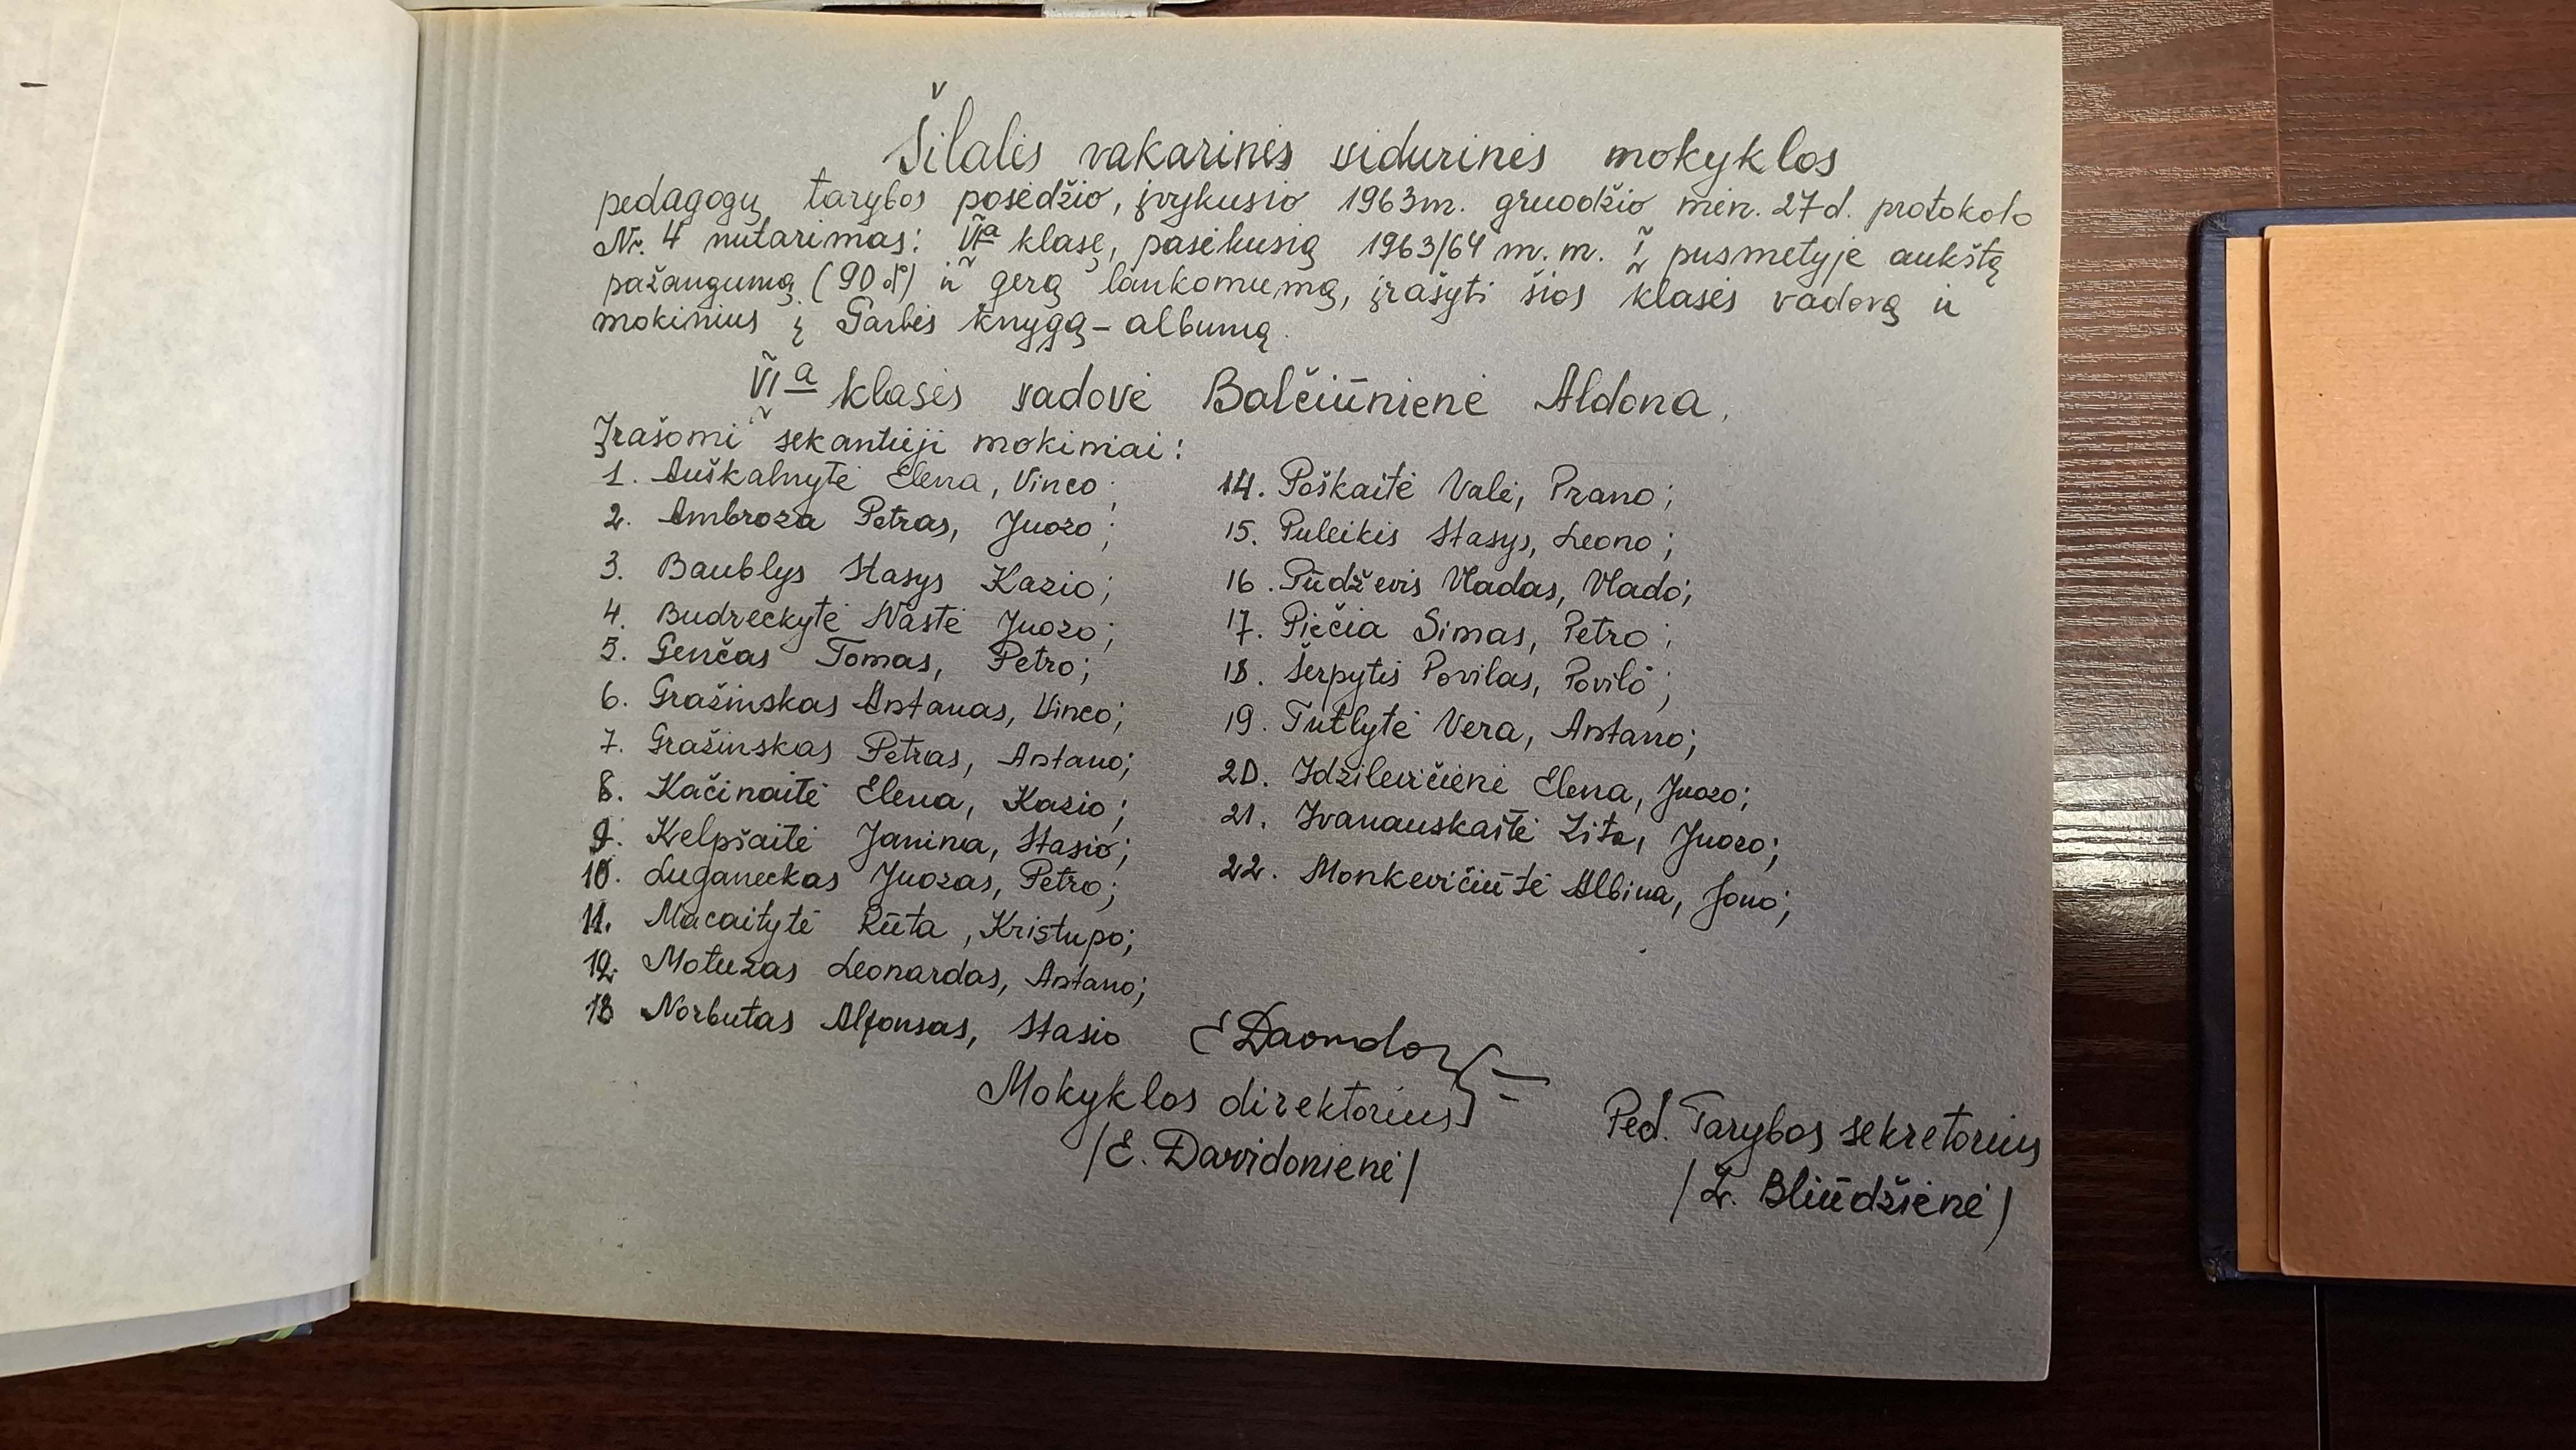 Šilalės vakarinės vidurinės mokyklos
pedagogų tarybos posėdžio, įvykusio 1963m. gruodžio mėn. 27d. protokolo
Nr. 4 nutarimas: VIa klasę, pasiekusią 1963/64 m. m. I pusmetyje aukštą
pažangumą (90%) ir gerą lankomumą, įrašyti šios klasės vadovą ir
mokinius į Garbės knygą-albumą.
VIa klasės vadovė Balčiūnienė Aldona.
Įrašomi sekantieji mokiniai:
1. Auškalnytė Elena, Vinco;
2. Ambroza Petras, Juozo;
3. Baublys Stasys Kazio;
4. Budreckytė Nastė Juozo;
5. Genčas Tomas, Petro;
6. Gražinskas Antanas, Vinco;
7. Gražinskas Petras, Antano;
8. Kačinaitė Elena, Kazio;
9. Kelpšaitė Janina, Stasio;
10. Luganeckas Juozas, Petro;
11. Macaitytė Rūta, Kristupo;
12. Motuzas Leonardas, Antano;
13 Norbutas Alfonsas, Stasio
14. Poškaitė Valė, Prano;
15. Puleikis Stasys, Leono;
16. Pūdževis Vladas, Vlado;
17. Piečia Simas, Petro;
18. Šerpytis Povilas, Povilo;
19. Tutlytė Vera, Antano;
20. Idzilevičienė Elena, Juozo;
21. Ivanauskaitė Zita, Juozo;
22. Monkevičiūtė Albina, Jono;
Mokyklos direktorius
/E. Davidonienė/
Ped. Tarybos sekretorius
/Z. Bliūdžienė/